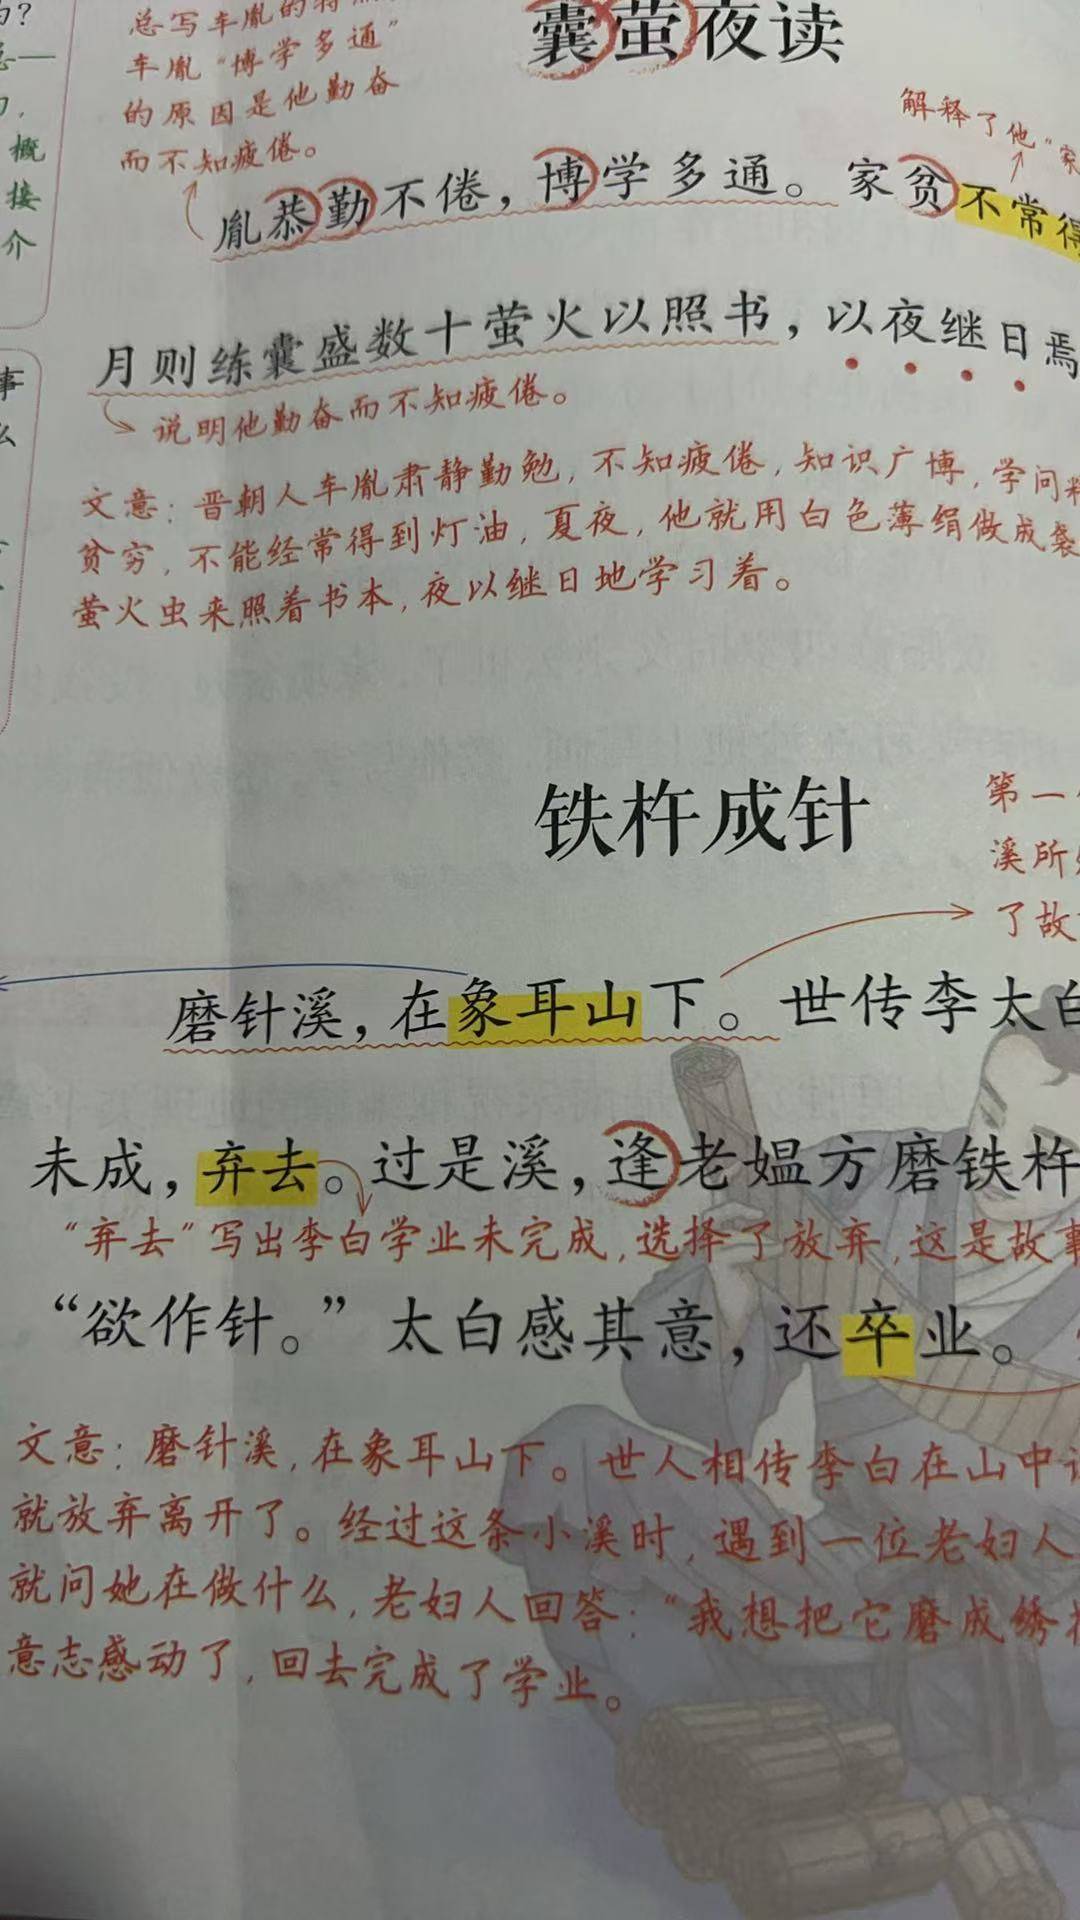 囊萤夜读
总写车胤的特
车胤“博学多通”
的原因是他勤奋
而不知疲倦。
解释了他“家
胤恭勤不倦，博学多通。家贫不常得
月则练囊盛数十萤火以照书，以夜继日焉
说明他勤奋而不知疲倦。
文意：晋朝人车胤肃静勤勉，不知疲倦，知识广博，学问精
贫穷，不能经常得到灯油，夏夜，他就用白色薄绢做成袋
萤火虫来照着书本，夜以继日地学习着。
概
接
介
事
么
铁杵成针
第一
溪所
了故
磨针溪，在象耳山下。世传李太白
未成，弃去。过是溪，逢老媪方磨铁杵
“弃去”写出李白学业未完成，选择了放弃，这是故事
“欲作针。”太白感其意，还卒业。
文意：磨针溪，在象耳山下。世人相传李白在山中
就放弃离开了。经过这条小溪时，遇到一位老妇人
就问她在做什么，老妇人回答：“我想把它磨成绣
意志感动了，回去完成了学业。